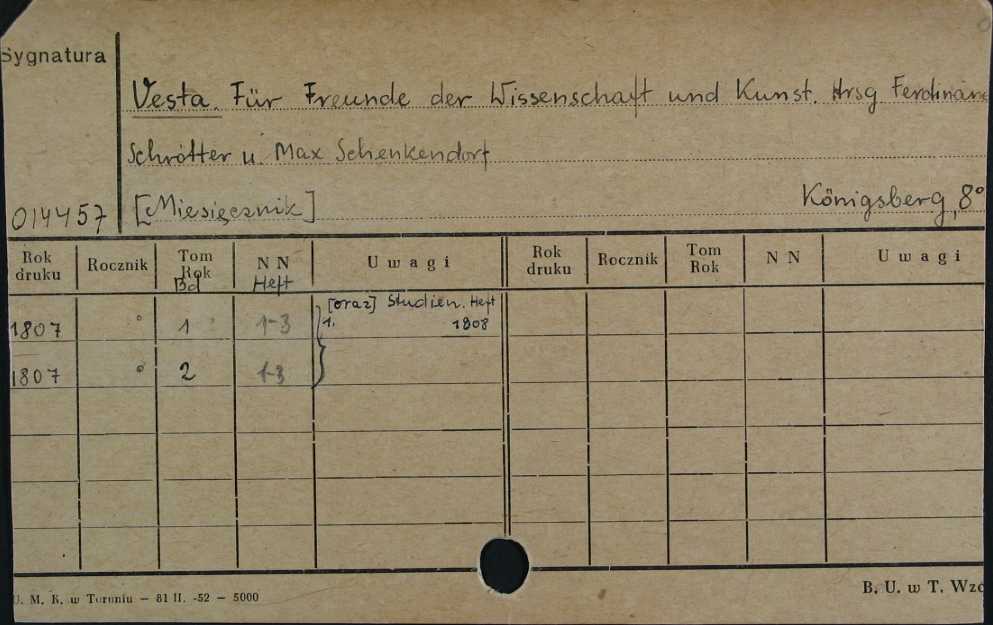 Sygnatura
Vesta. Für Freunde der Wissenschaft und Kunst. Hrsg Ferdinand
Schrötter u. Max Schenkendorf
014457 [Miesięcznik] Königsberg, 8°
Rok druku Rocznik Tom Rok Bd N N Heft Uwagi Rok druku Rocznik Tom Rok N N Uwagi
[oraz] Studien. Heft
1807 ° 1 1-3 1. 1808
1807 ° 2 1-3
U. M. K. w Toruniu — 81 II. -52 — 5000 B. U. w T. Wzó